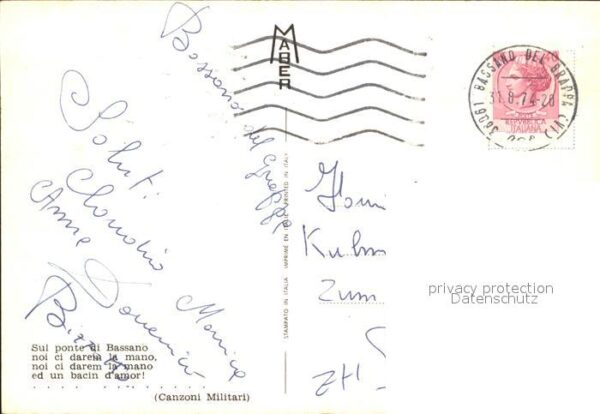 Bassano del Grappa
Saluti
Claudio Monica
Anna Domenico
MABER
36061 BASSANO DEL GRAPPA (VI)
31.8.74-20
REPUBBLICA
ITALIANA
STAMPATO IN ITALIA IMPRIMÉ EN ITALIE PRINTED IN ITALY
Kuhn
Zum
ZH
privacy protection
Datenschutz
Sul ponte di Bassano
noi ci darem la mano,
noi ci darem la mano
ed un bacin d'amor!
(Canzoni Militari)